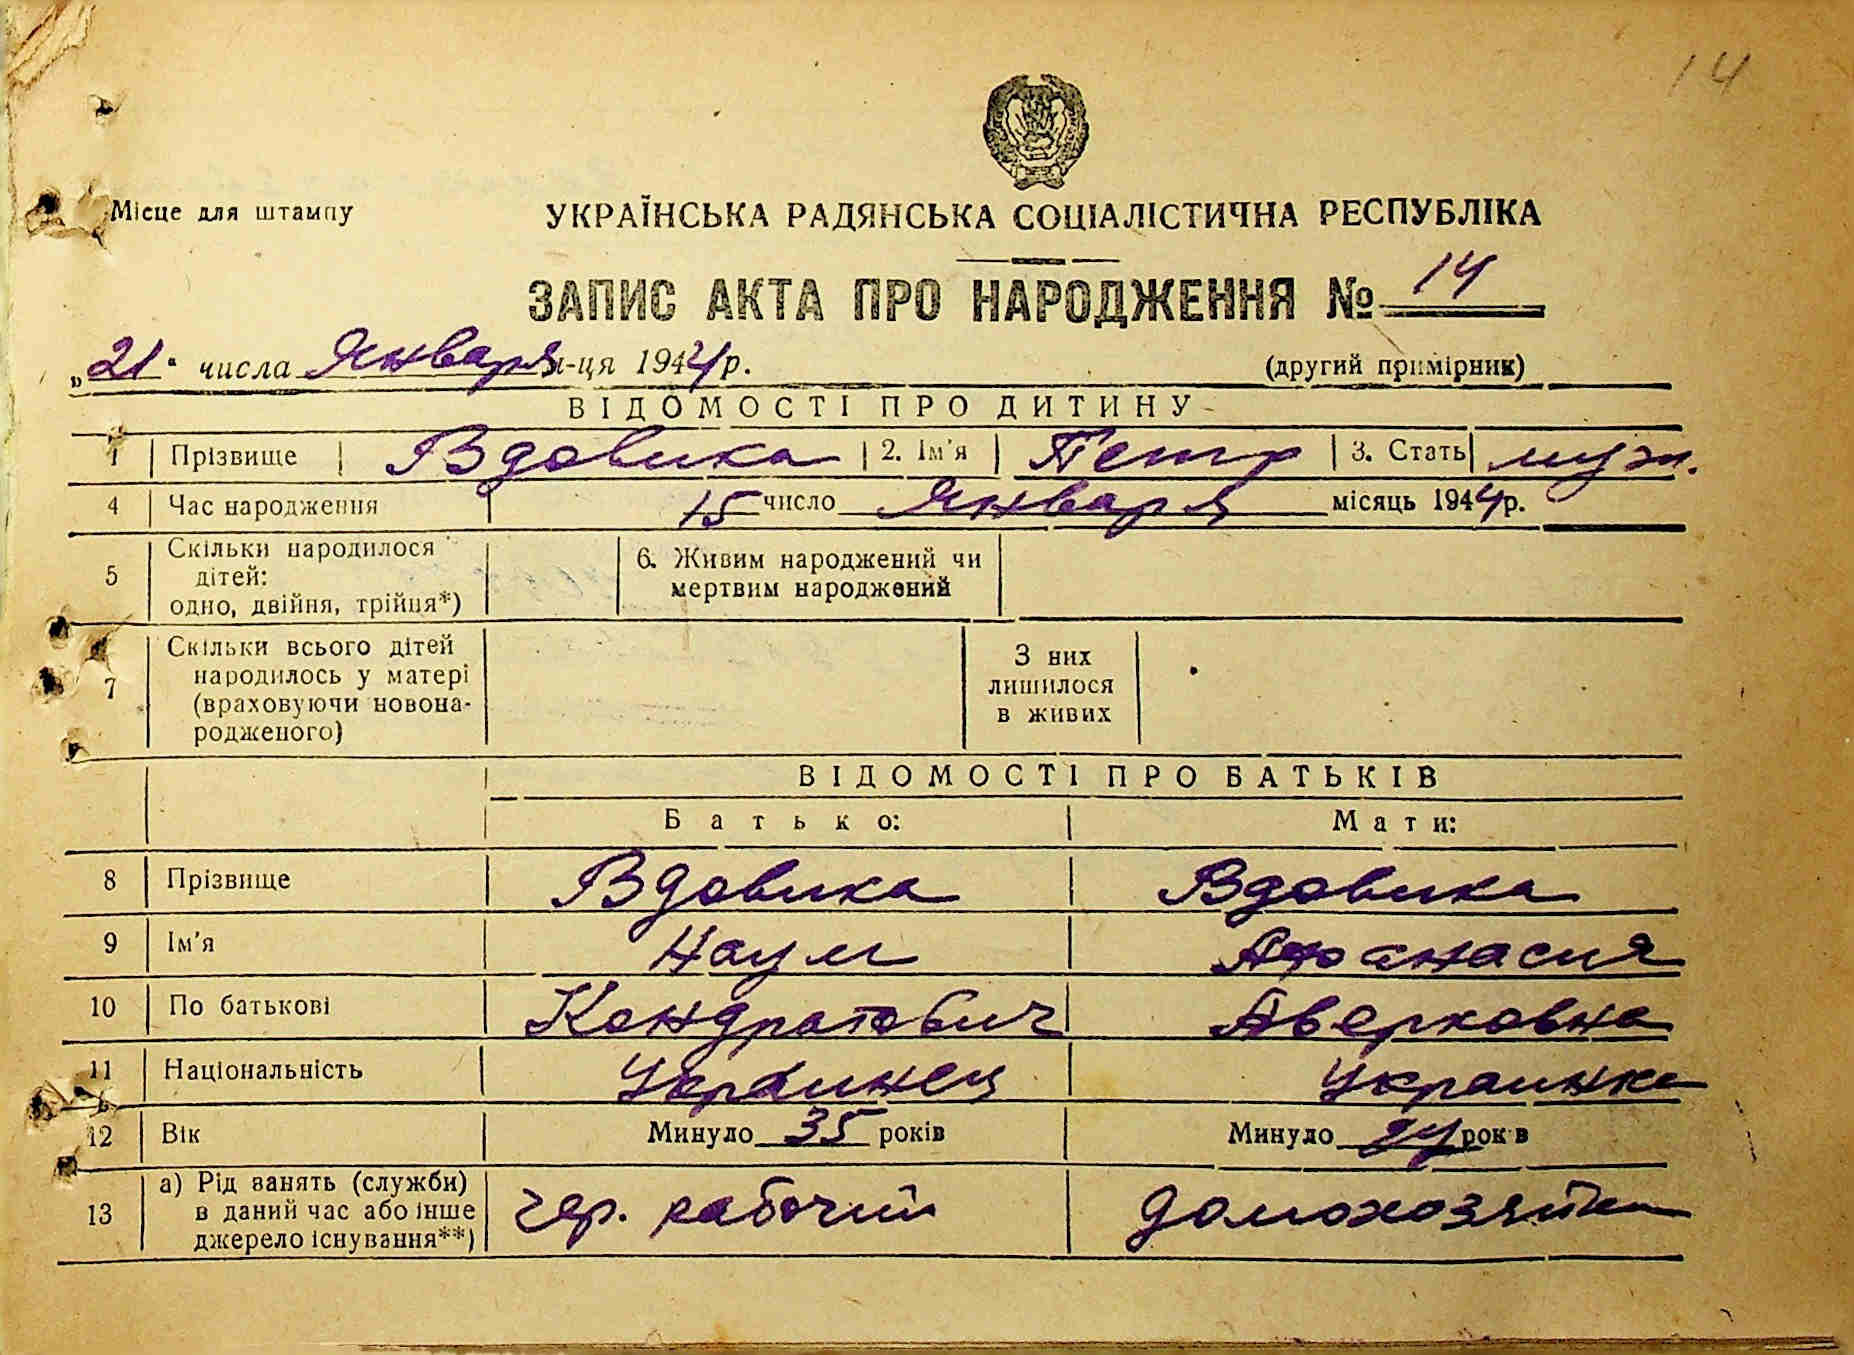 14
Місце для штампу
УКРАЇНСЬКА РАДЯНСЬКА СОЦІАЛІСТИЧНА РЕСПУБЛІКА
ЗАПИС АКТА ПРО НАРОДЖЕННЯ № 14
„21“ числа Января м-ця 1944 р. (другий примірник)
ВІДОМОСТІ ПРО ДИТИНУ
1 Прізвище Вдовика 2. Ім'я Петр 3. Стать муж.
4 Час народження 15 число Января місяць 1944 р.
5 Скільки народилося дітей: одно, двійня, трійня*) 6. Живим народжений чи мертвим народжений
7 Скільки всього дітей народилось у матері (враховуючи новонародженого) З них лишилося в живих
ВІДОМОСТІ ПРО БАТЬКІВ
Батько: Мати:
8 Прізвище Вдовика Вдовика
9 Ім'я Наум Афанасия
10 По батькові Кондратович Аверковна
11 Національність Украинец Украинка
12 Вік Минуло 35 років Минуло років
13 а) Рід занять (служби) в даний час або інше джерело існування**) чер. рабочий домохозяйка